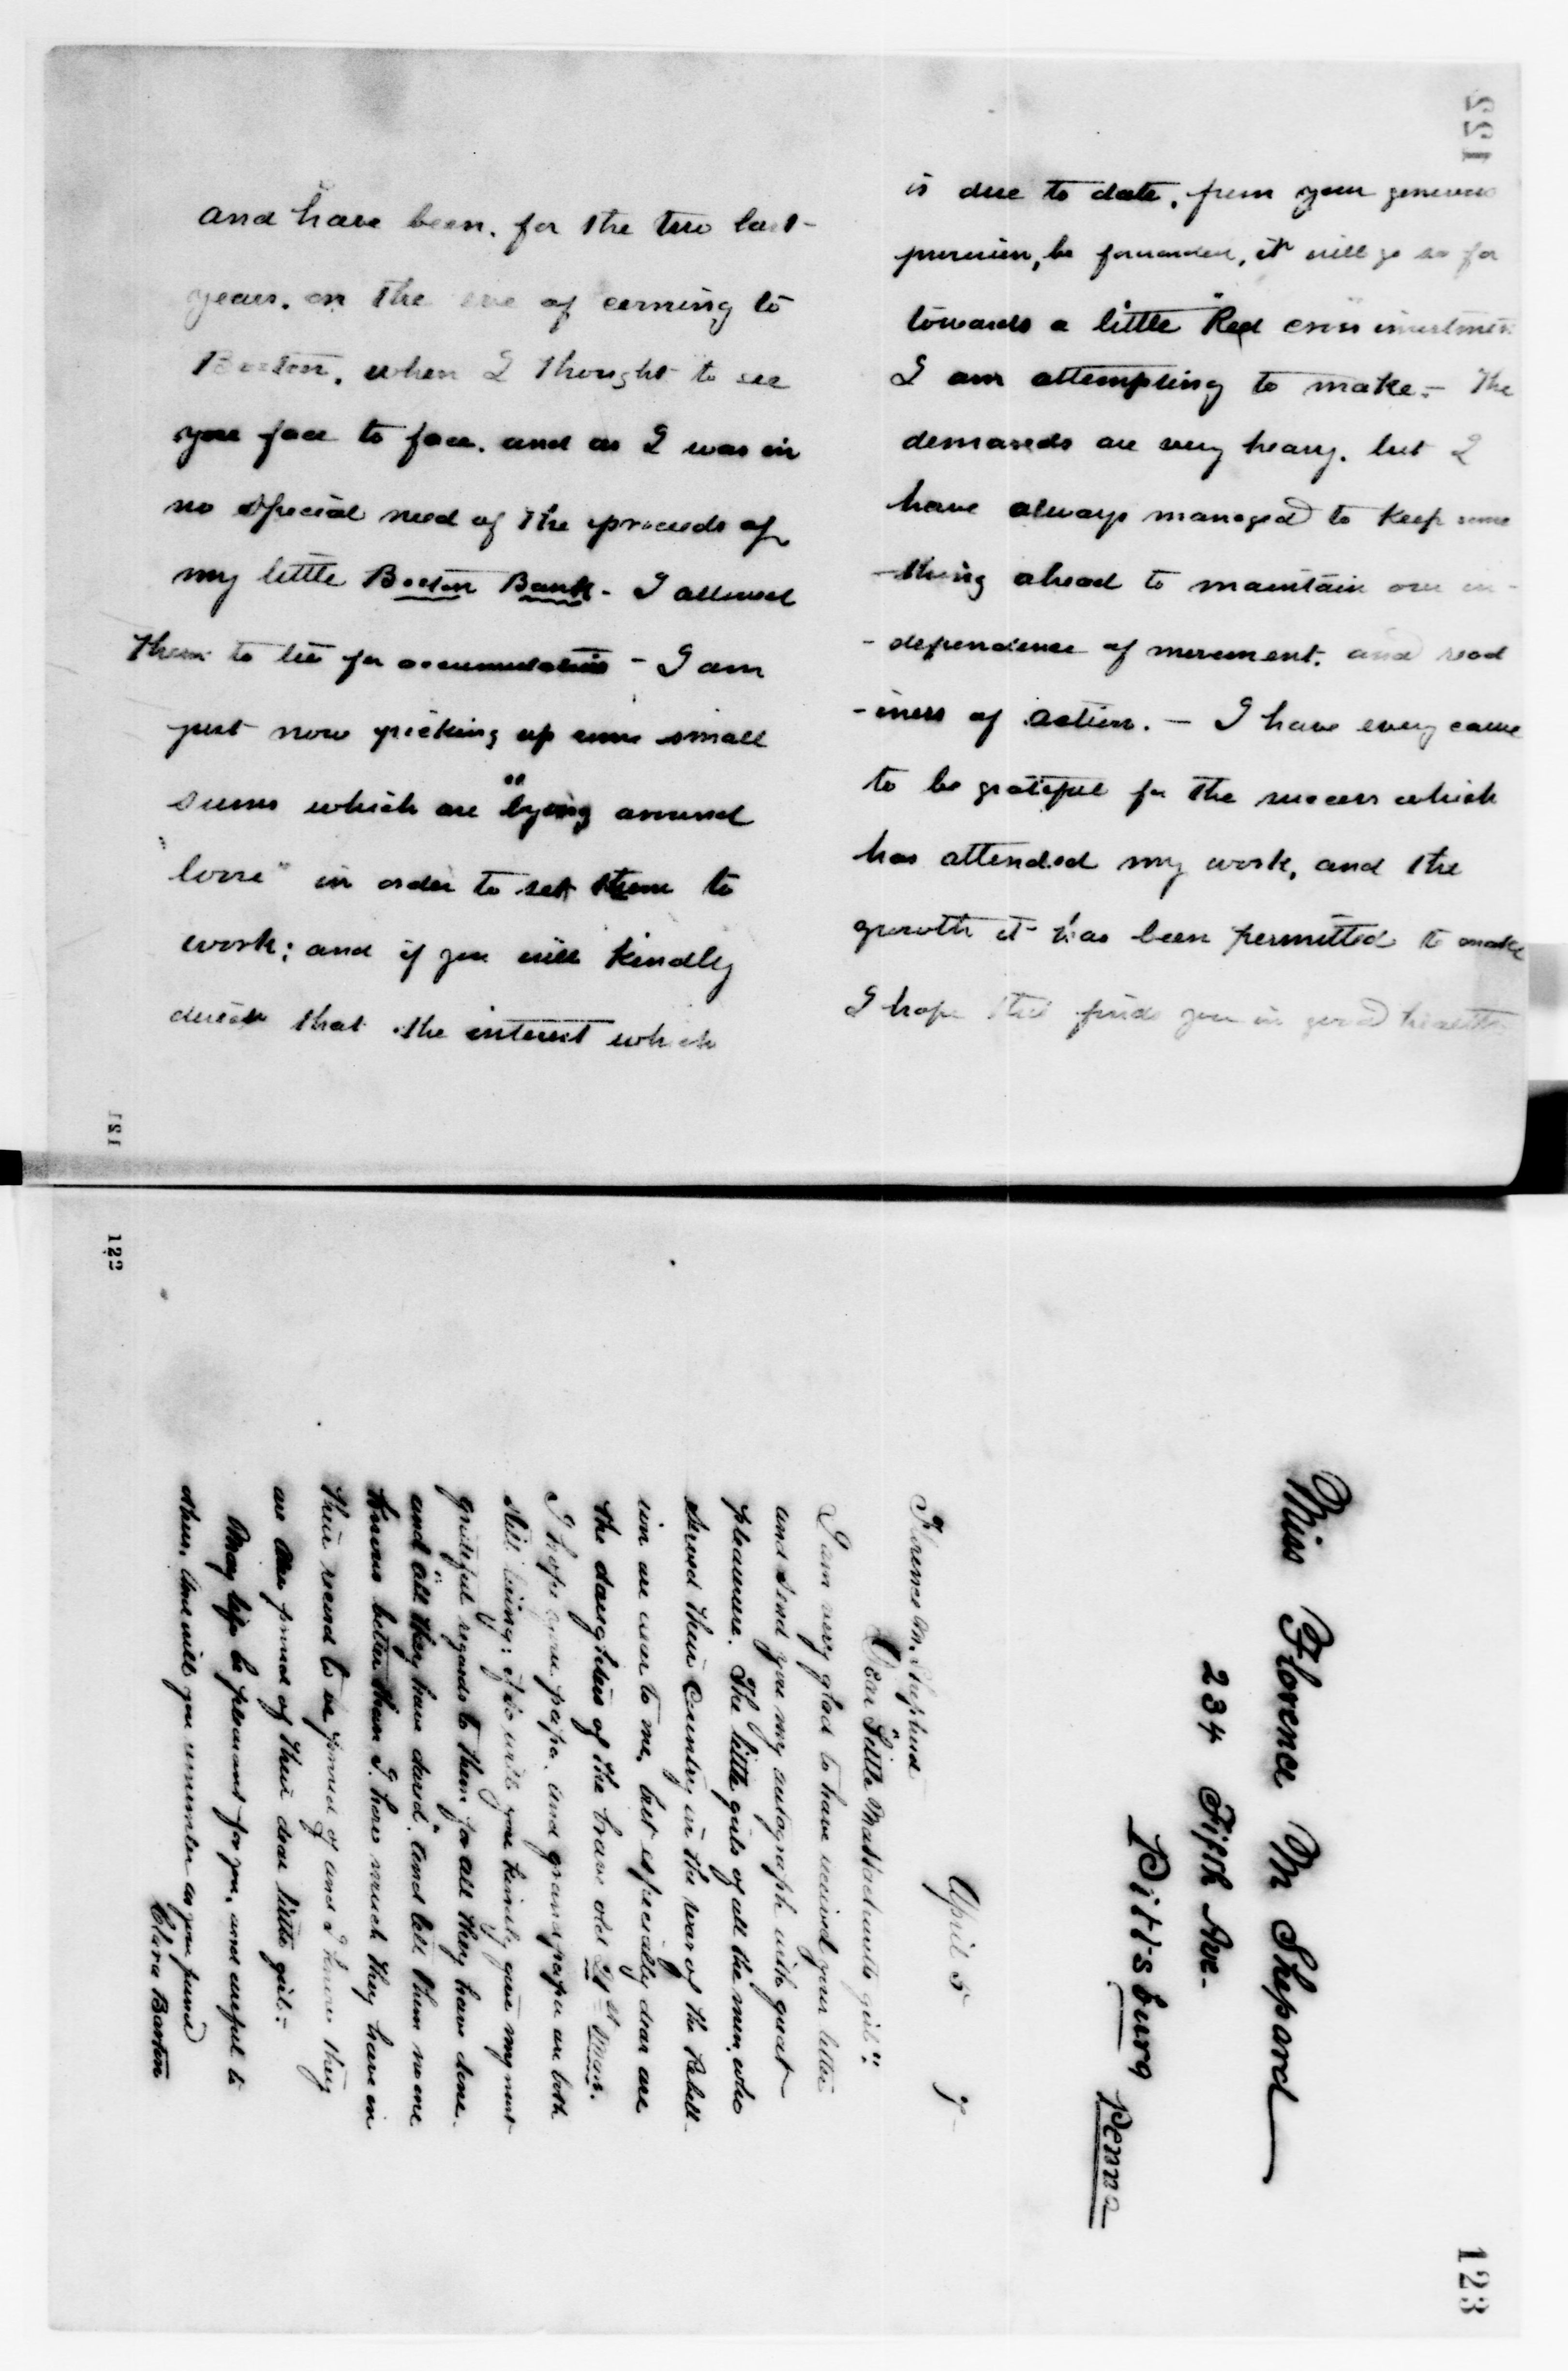 and have been, for the two last
years, on the eve of coming to
Boston, when I thought to see
you face to face, and as I was in
no special need of the proceeds of
my little Boston Bank - I allowed
them to lie for accumulation - I am
just now picking up some small
sums which are "lying around
loose" in order to set them to
work; and if you will kindly
direct that the interest which
121
122
is due to date, from your generous
provision, be forwarded, it will go so far
towards a little "Red cross" investment
I am attempting to make. - The
demands are very heavy, but I
have always managed to keep some
-thing ahead to maintain our in-
- dependence of movement, and read
-iness of action. - I have every cause
to be grateful for the success which
has attended my work, and the
growth it has been permitted to make
I hope this finds you in good health
122
Miss Florence M Shepard
234 Fifth Ave-
Pitt's burg
Penna
123
April 5
Florence M. Shephard
Dear Little Massachusetts girl":
I am very glad to have received your letter
and send you my autograph with great
pleasure. The little girls of all the men who
served their Country in the war of the Rebell-
ion are near to me, but especially dear are
the daughters of the brave old 21st Mass.
I hope your papa, and grandpapa are both
still living; if so will you kindly give my most
grateful regards to them for all they have done
and "all they have dared", and tell them no one
knows better than I how much they have in
their record to be proud of and I know they
are also proud of their dear little girl.-
May life be pleasant for you, and useful to
others, and will you remember as your friend
Clara Barton